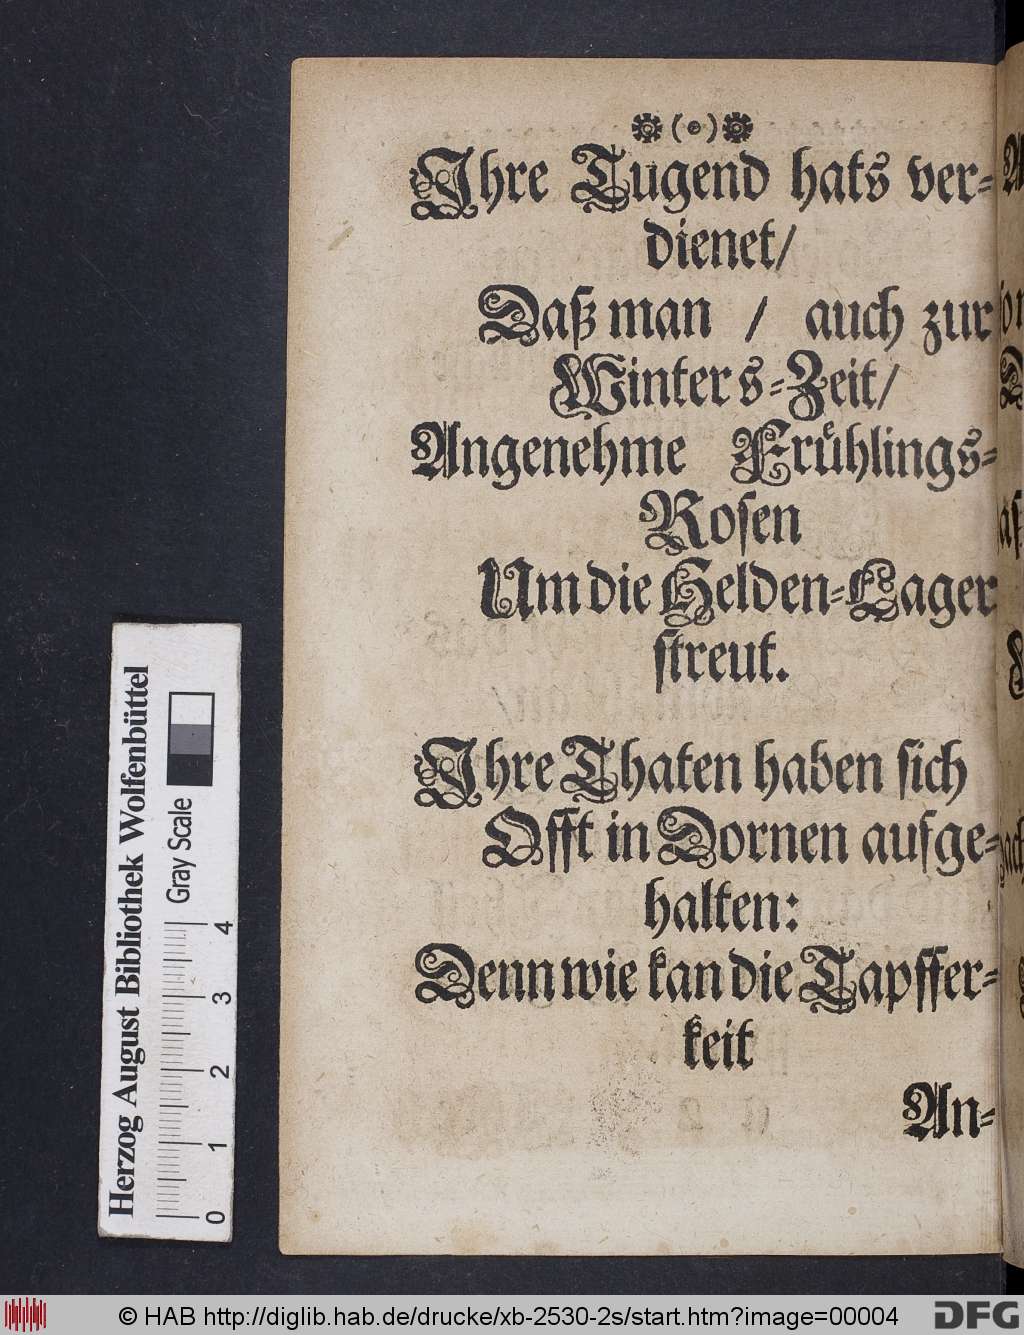 ❁(∘)❁
Ihre Tugend hats ver-
dienet/
Daß man / auch zur
Winters-Zeit/
Angenehme Fruͤhlings-
Rosen
Um die Helden-Lager
streut.
Ihre Thaten haben sich
Offt in Dornen aufge-
halten:
Denn wie kan die Tapffer-
keit
An-
Herzog August Bibliothek Wolfenbüttel
Gray Scale
0 1 2 3 4
© HAB http://diglib.hab.de/drucke/xb-2530-2s/start.htm?image=00004
DFG